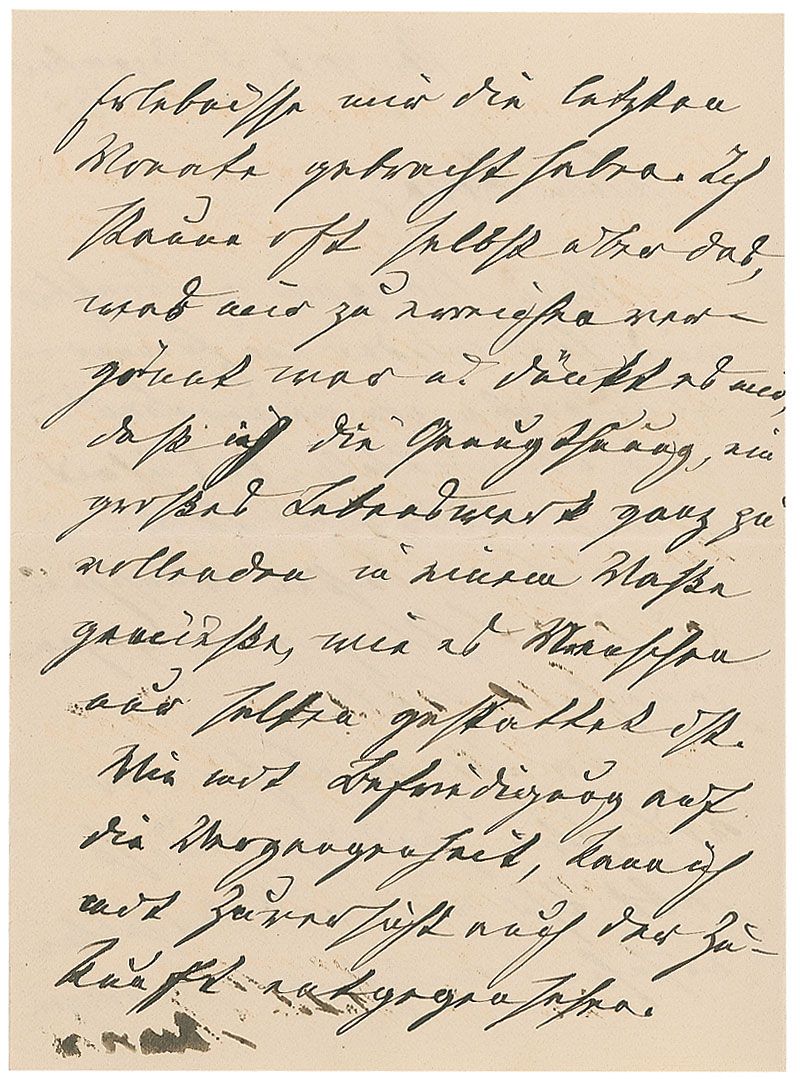 Erlebnisse mir die letzten
Monate gebracht haben. Ich
staune oft selbst über das,
was mir zu erreichen ver-
gönnt war u. dünkt es mir,
daß ich die Genugthuung, ein
großes Lebenswerk ganz zu
vollenden in einem Maße
genieße, wie es Menschen
nur selten gestattet ist.
Wie mit Befriedigung auf
die Vergangenheit, kann ich
mit Zuversicht auch der Zu-
kunft entgegensehen.